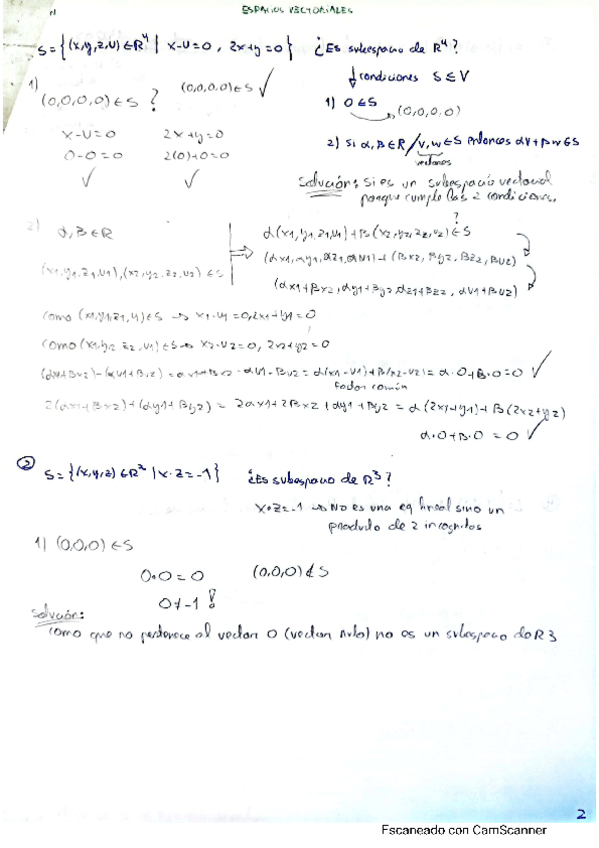 ESPACIOS VECTORIALES
S = {(x,y,z,u) ∈ R⁴ | x-u=0, 2x+y=0} ¿Es subespacio de R⁴?
↓ condiciones S ⊆ V
1) 0 ∈ S → (0,0,0,0)
2) Si α, β ∈ R / v, w ∈ S entonces αv + βw ∈ S
vectores
Solución: Si es un subespacio vectorial
porque cumple las 2 condiciones.
1) (0,0,0,0) ∈ S ? (0,0,0,0) ∈ S ✓
x-u=0 2x+y=0
0-0=0 2(0)+0=0
✓ ✓
2) α, β ∈ R
(x1,y1,z1,u1), (x2,y2,z2,u2) ∈ S
⇒ α(x1,y1,z1,u1) + β(x2,y2,z2,u2) ∈ S ?
(αx1, αy1, αz1, αu1) + (βx2, βy2, βz2, βu2)
(αx1+βx2, αy1+βy2, αz1+βz2, αu1+βu2)
Como (x1,y1,z1,u1) ∈ S → x1-u1=0, 2x1+y1=0
Como (x2,y2,z2,u2) ∈ S → x2-u2=0, 2x2+y2=0
= α(x1-u1)+β(x2-u2) = α·0+β·0=0 ✓
Factor común
2(αx1+βx2)+(αy1+βy2) = 2αx1+2βx2+αy1+βy2 = α(2x1+y1)+β(2x2+y2)
α·0+β·0=0 ✓
② S = {(x,y,z) ∈ R³ | x·z=-1} ¿Es subespacio de R³?
x·z=-1 → No es una eq lineal sino un
producto de 2 incognitas
1) (0,0,0) ∈ S
0·0=0 (0,0,0) ∉ S
0≠-1 !
Solución:
Como que no pertenece al vector 0 (vector nulo) no es un subespacio de R3
2
Escaneado con CamScanner